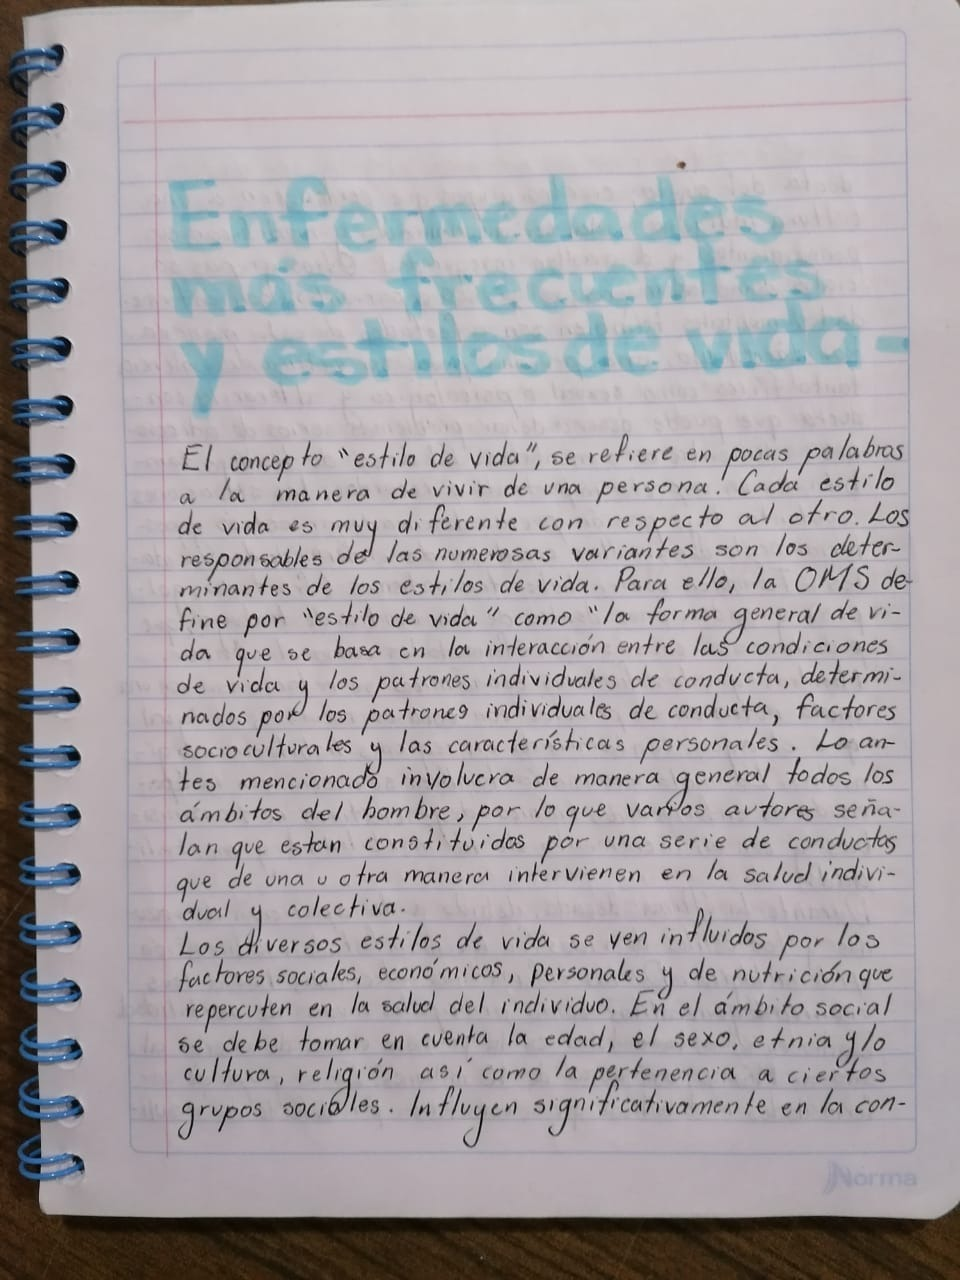 Enfermedades
más frecuentes
y estilos de vida-
El concepto "estilo de vida", se refiere en pocas palabras
a la manera de vivir de una persona. Cada estilo
de vida es muy diferente con respecto al otro. Los
responsables de las numerosas variantes son los deter-
minantes de los estilos de vida. Para ello, la OMS de-
fine por "estilo de vida" como "la forma general de vi-
da que se basa en la interacción entre las condiciones
de vida y los patrones individuales de conducta, determi-
nados por los patrones individuales de conducta, factores
socioculturales y las características personales. Lo an-
tes mencionado involucra de manera general todos los
ámbitos del hombre, por lo que varios autores seña-
lan que estan constituidos por una serie de conductas
que de una u otra manera intervienen en la salud indivi-
dual y colectiva.
Los diversos estilos de vida se ven influidos por los
factores sociales, económicos, personales y de nutrición que
repercuten en la salud del individuo. En el ámbito social
se debe tomar en cuenta la edad, el sexo, etnia y/o
cultura, religión así como la pertenencia a ciertos
grupos sociales. Influyen significativamente en la con-
Norma